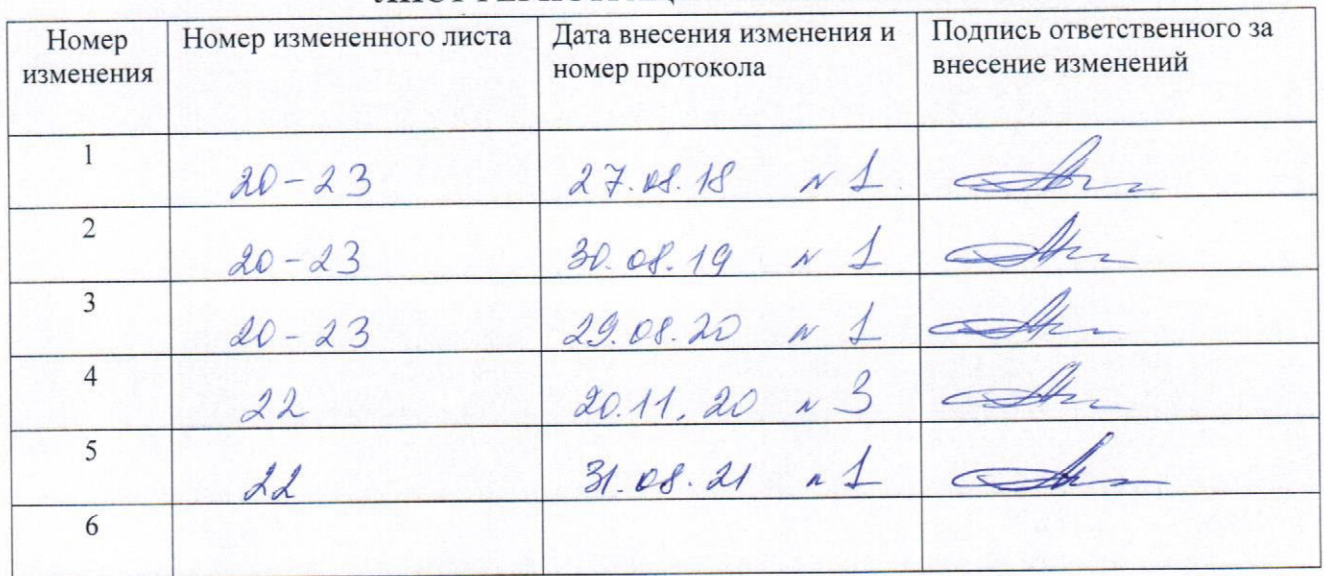 Номер изменения Номер измененного листа Дата внесения изменения и номер протокола Подпись ответственного за внесение изменений
1 20-23 27.08.18 № 1
2 20-23 30.08.19 № 1
3 20-23 29.08.20 № 1
4 22 20.11.20 № 3
5 22 31.08.21 № 1
6